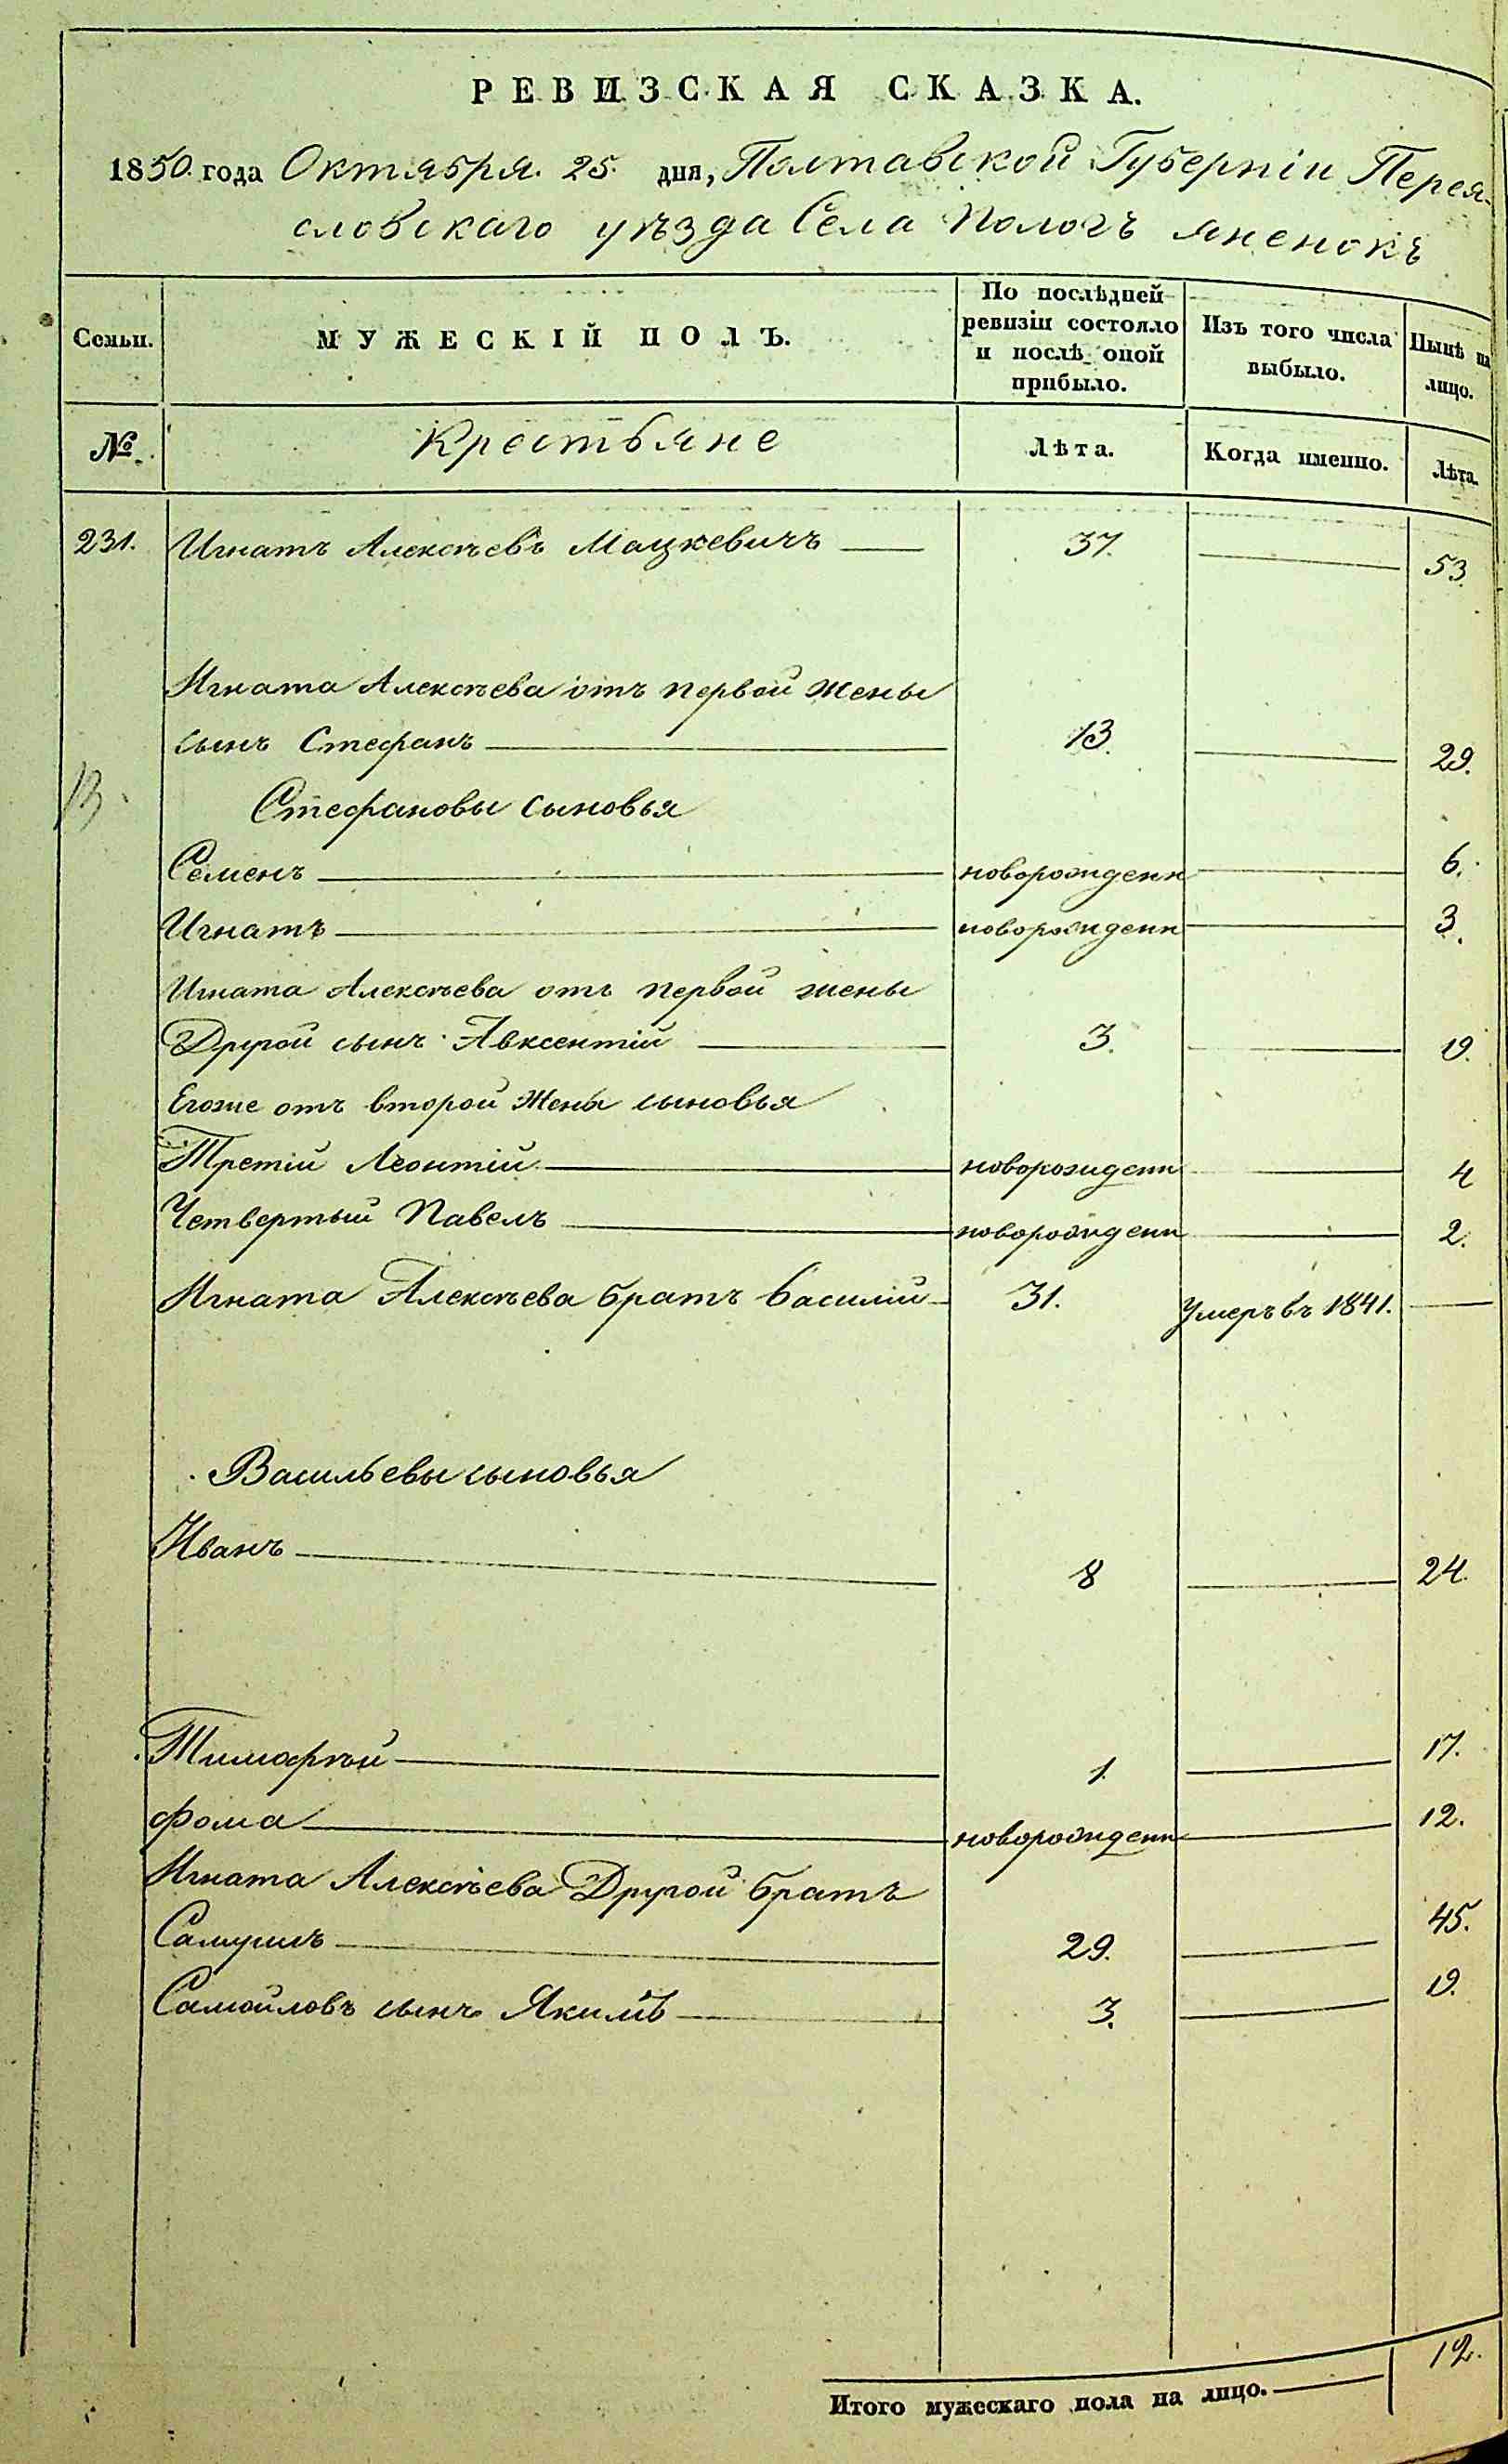 РЕВИЗСКАЯ СКАЗКА.
1850. года Октября. 25. дня, Полтавской Губерніи Перея-
словскаго уѣзда Села Пологъ яненокъ
Семьи. МУЖЕСКІЙ ПОЛЪ. По послѣдней ревизіи состояло и послѣ оной прибыло. Изъ того числа выбыло. Нынѣ на лицо.
№. Крестьяне Лѣта. Когда именно. Лѣта.
231. Игнатъ Алексѣевъ Мацкевичъ 37. 53.
Игната Алексѣева отъ первой жены
сынъ Стефанъ 13. 29.
13
Стефановы сыновья
Семенъ новорожденн 6.
Игнатъ новорожденн 3.
Игната Алексѣева отъ первой жены
Другой сынъ Авксентій 3. 19.
Егоже отъ второй жены сыновья
Третій Леонтій новорожденн 4
Четвертый Павелъ новорожденн 2.
Игната Алексѣева братъ Василий 31. Умеръ въ 1841.
Васильевы сыновья
Иванъ 8 24.
Тимофѣй 1. 17.
Фома новорожденн 12.
Игната Алексѣева Другой братъ
Самуилъ 29. 45.
Самойловъ сынъ Якимъ 3. 19.
Итого мужескаго пола на лицо. 12.